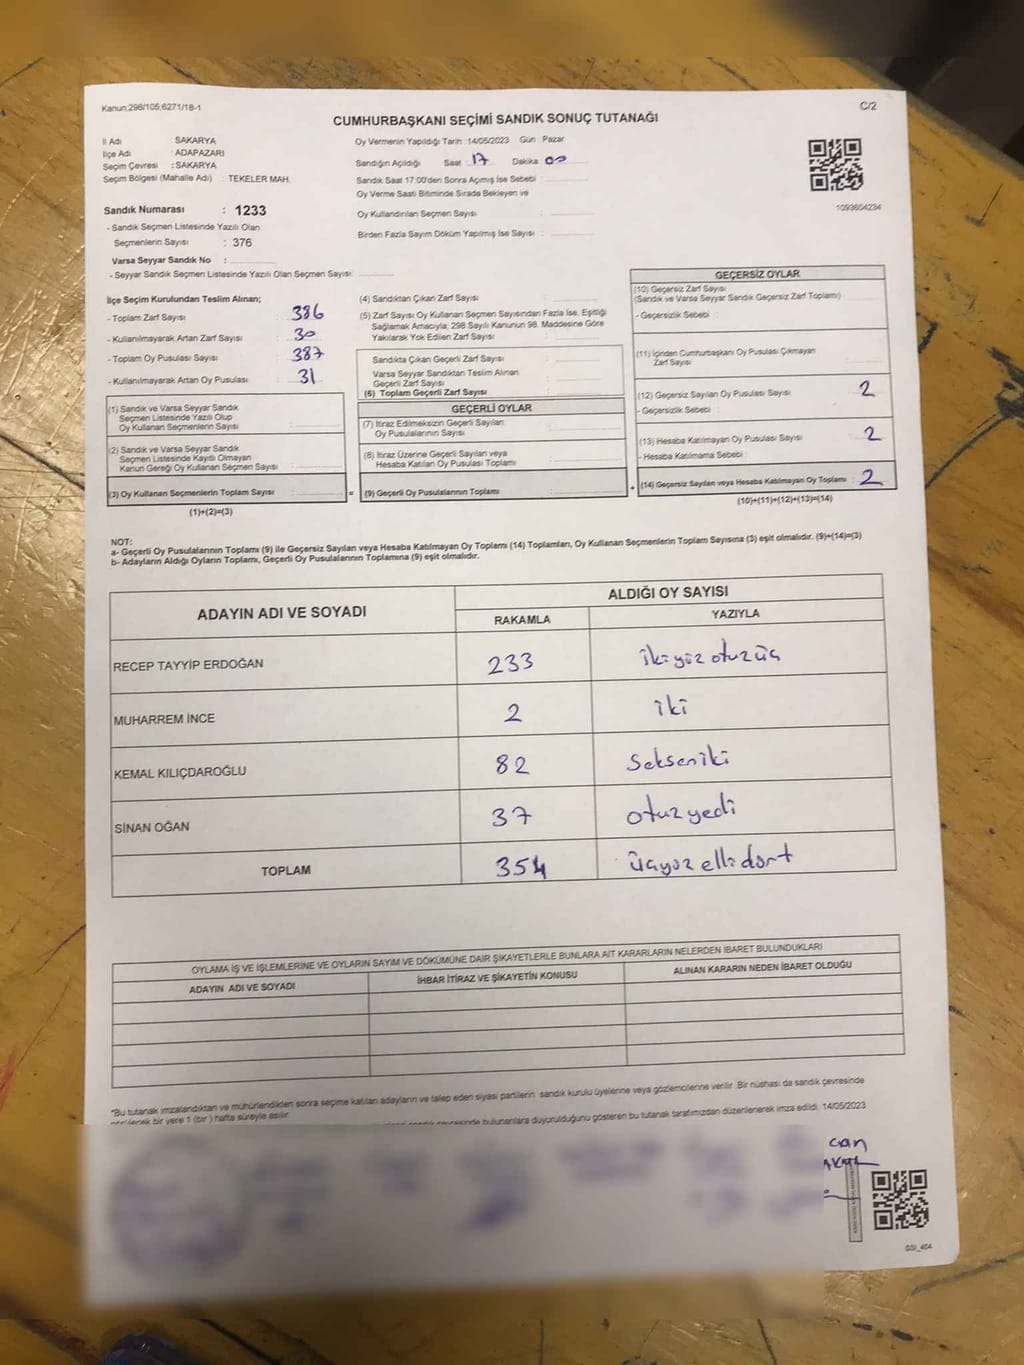 Kanun;298/105;6271/18-1
C/2
CUMHURBAŞKANI SEÇİMİ SANDIK SONUÇ TUTANAĞI
İl Adı : SAKARYA
İlçe Adı : ADAPAZARI
Seçim Çevresi : SAKARYA
Seçim Bölgesi (Mahalle Adı) : TEKELER MAH.
Sandık Numarası : 1233
- Sandık Seçmen Listesinde Yazılı Olan
Seçmenlerin Sayısı : 376
Varsa Seyyar Sandık No :
- Seyyar Sandık Seçmen Listesinde Yazılı Olan Seçmen Sayısı:
Oy Vermenin Yapıldığı Tarih : 14/05/2023 Gün : Pazar
Sandığın Açıldığı Saat : 17 Dakika : 00
Sandık Saat 17:00'den Sonra Açımış İse Sebebi :
Oy Verme Saati Bitiminde Sırada Bekleyen ve
Oy Kullandırılan Seçmen Sayısı :
Birden Fazla Sayım Döküm Yapılmış İse Sayısı :
1093604234
İlçe Seçim Kurulundan Teslim Alınan;
- Toplam Zarf Sayısı : 386
- Kullanılmayarak Artan Zarf Sayısı : 30
- Toplam Oy Pusulası Sayısı : 387
- Kullanılmayarak Artan Oy Pusulası : 31
(1) Sandık ve Varsa Seyyar Sandık
Seçmen Listesinde Yazılı Olup
Oy Kullanan Seçmenlerin Sayısı :
(2) Sandık ve Varsa Seyyar Sandık
Seçmen Listesinde Kayıtlı Olmayan
Kanun Gereği Oy Kullanan Seçmen Sayısı :
(3) Oy Kullanan Seçmenlerin Toplam Sayısı :
(1)+(2)=(3)
(4) Sandıktan Çıkan Zarf Sayısı :
(5) Zarf Sayısı Oy Kullanan Seçmen Sayısından Fazla İse, Eşitliği
Sağlamak Amacıyla; 298 Sayılı Kanunun 98. Maddesine Göre
Yakılarak Yok Edilen Zarf Sayısı :
Sandıkta Çıkan Geçerli Zarf Sayısı :
Varsa Seyyar Sandıktan Teslim Alınan
Geçerli Zarf Sayısı :
(6) Toplam Geçerli Zarf Sayısı :
GEÇERLİ OYLAR
(7) İtiraz Edilmeksizin Geçerli Sayılan
Oy Pusulalarının Sayısı :
(8) İtiraz Üzerine Geçerli Sayılan veya
Hesaba Katılan Oy Pusulası Toplamı :
= (9) Geçerli Oy Pusulalarının Toplamı :
GEÇERSİZ OYLAR
(10) Geçersiz Zarf Sayısı
(Sandık ve Varsa Seyyar Sandık Geçersiz Zarf Toplamı) :
- Geçersizlik Sebebi :
(11) İçinden Cumhurbaşkanı Oy Pusulası Çıkmayan
Zarf Sayısı :
(12) Geçersiz Sayılan Oy Pusulası Sayısı : 2
- Geçersizlik Sebebi :
(13) Hesaba Katılmayan Oy Pusulası Sayısı : 2
- Hesaba Katılmama Sebebi :
+ (14) Geçersiz Sayılan veya Hesaba Katılmayan Oy Toplamı : 2
(10)+(11)+(12)+(13)=(14)
NOT:
a- Geçerli Oy Pusulalarının Toplamı (9) ile Geçersiz Sayılan veya Hesaba Katılmayan Oy Toplamı (14) Toplamları, Oy Kullanan Seçmenlerin Toplam Sayısına (3) eşit olmalıdır. (9)+(14)=(3)
b- Adayların Aldığı Oyların Toplamı, Geçerli Oy Pusulalarının Toplamına (9) eşit olmalıdır.
ADAYIN ADI VE SOYADI
ALDIĞI OY SAYISI
RAKAMLA YAZIYLA
RECEP TAYYİP ERDOĞAN 233 ikiyüz otuzüç
MUHARREM İNCE 2 iki
KEMAL KILIÇDAROĞLU 82 Sekseniki
SİNAN OĞAN 37 otuzyedi
TOPLAM 354 üçyüz ellidört
OYLAMA İŞ VE İŞLEMLERİNE VE OYLARIN SAYIM VE DÖKÜMÜNE DAİR ŞİKAYETLERLE BUNLARA AİT KARARLARIN NELERDEN İBARET BULUNDUKLARI
ADAYIN ADI VE SOYADI İHBAR İTİRAZ VE ŞİKAYETİN KONUSU ALINAN KARARIN NEDEN İBARET OLDUĞU
*Bu tutanak imzalandıktan ve mühürlendikten sonra seçime katılan adayların ve talep eden siyasi partilerin, sandık kurulu üyelerine veya gözlemcilerine verilir. Bir nüshası da sandık çevresinde
görülecek bir yere 1 (bir) hafta süreyle asılır.
bulunanlara duyurulduğunu gösteren bu tutanak tarafımızdan düzenlenerek imza edildi. 14/05/2023
can